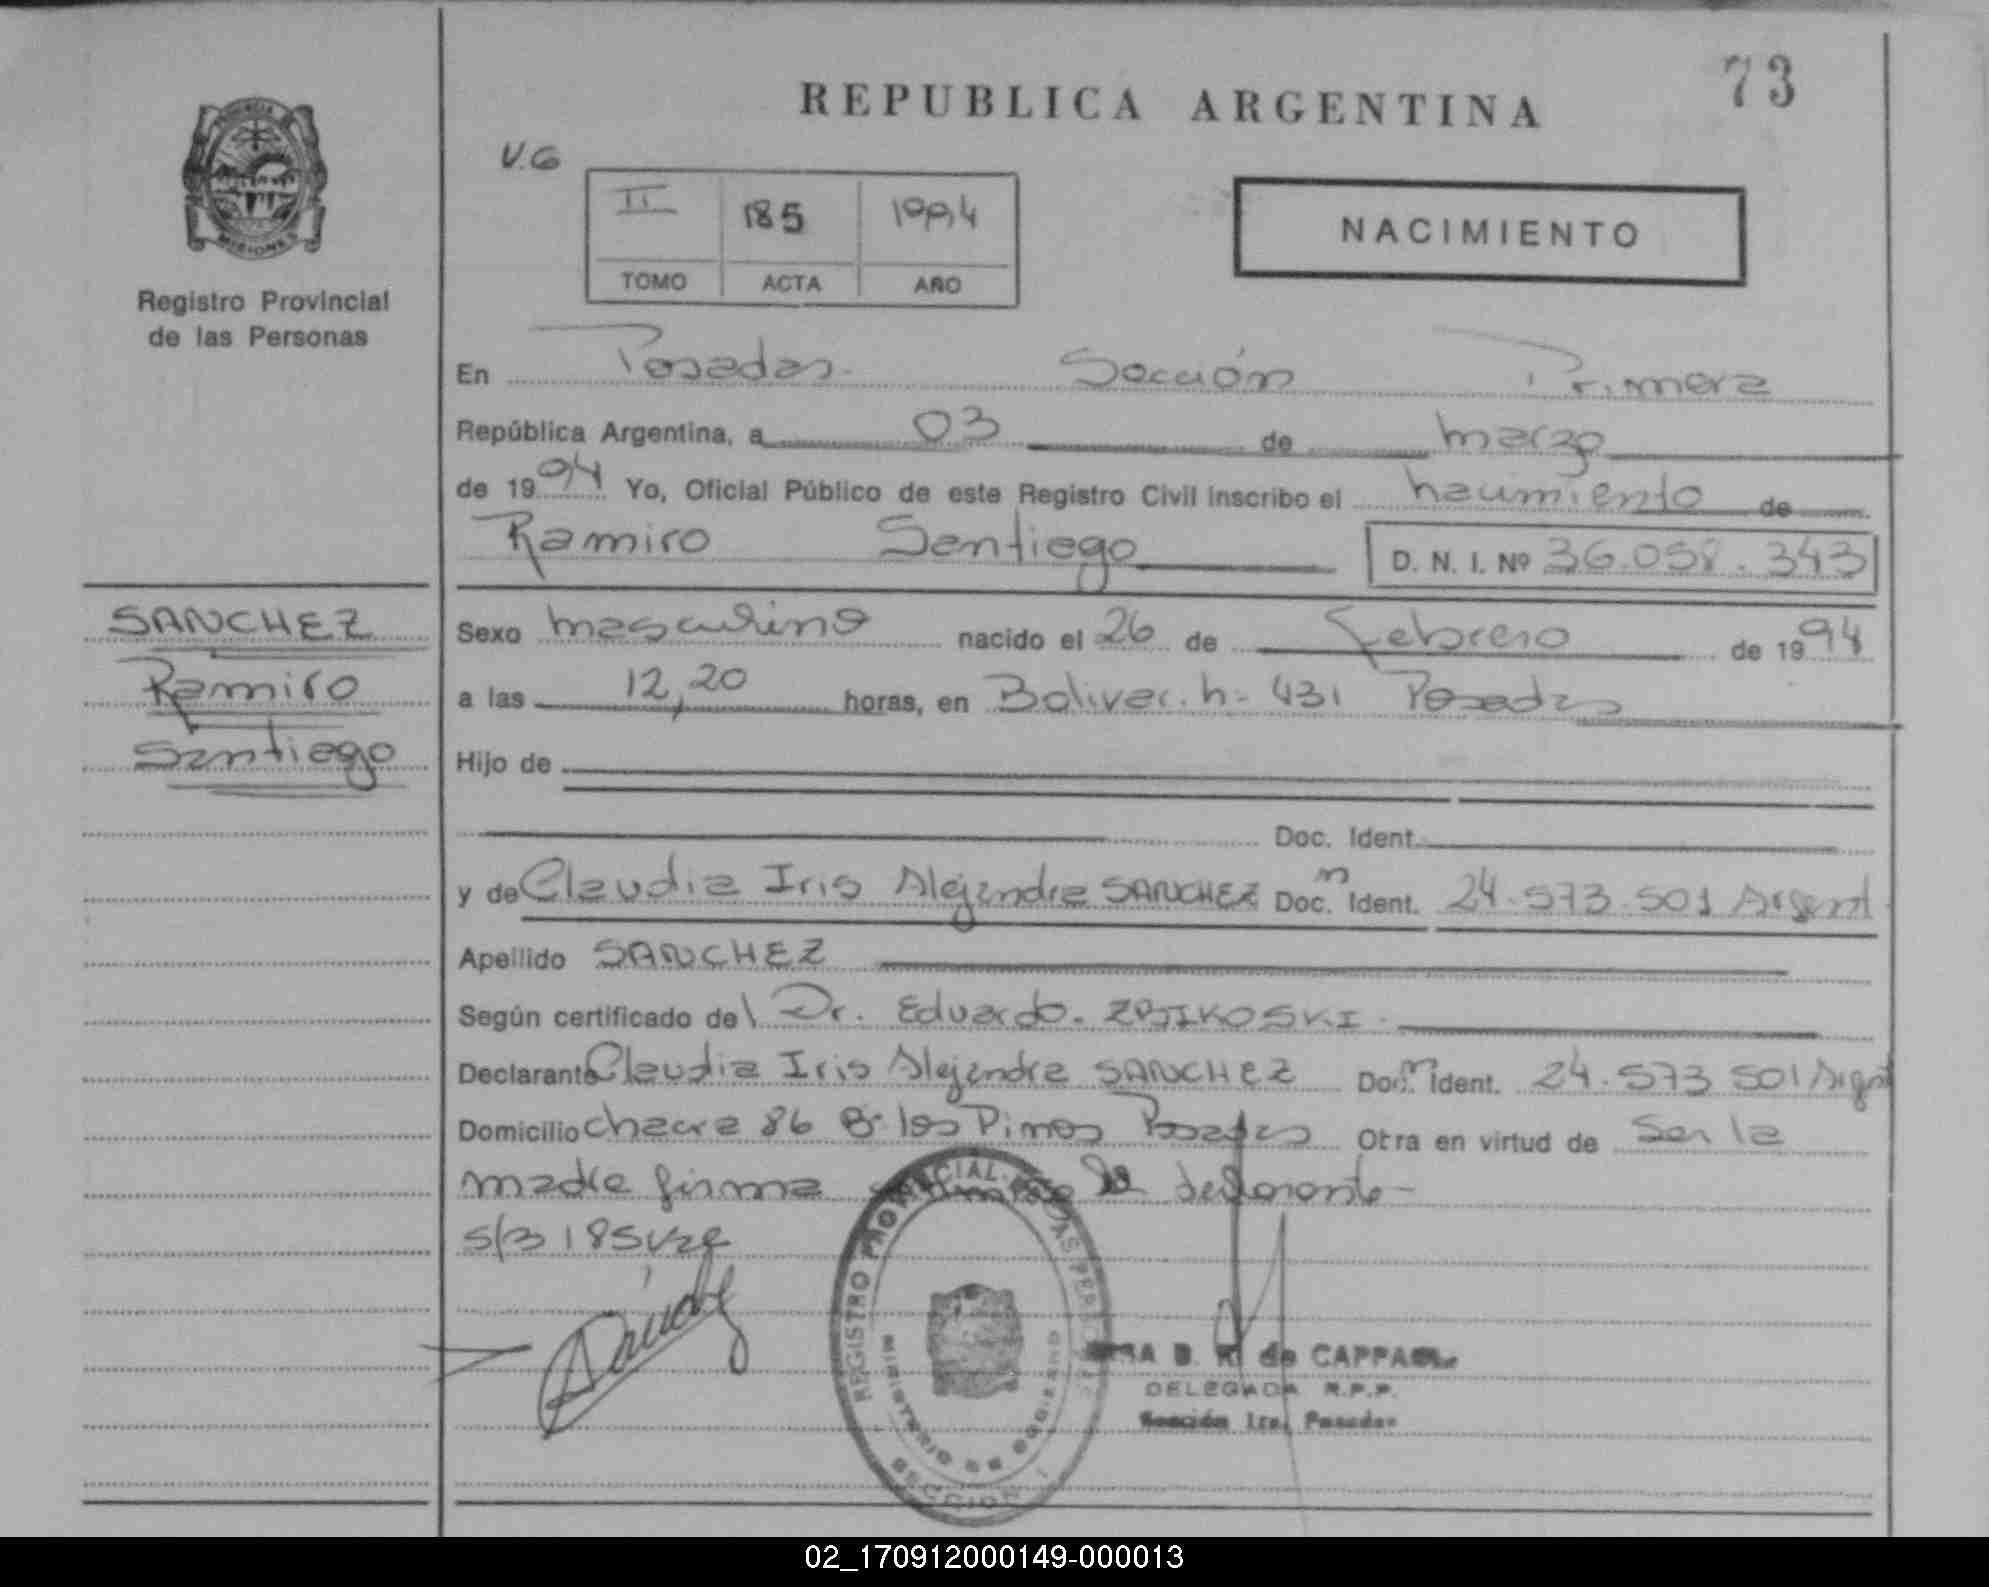 73
REPUBLICA ARGENTINA
V.G
II 185 1994
TOMO ACTA AÑO
NACIMIENTO
PROVINCIA
MISIONES
Registro Provincial
de las Personas
En Posadas Sección Primera
República Argentina, a 03 de marzo
de 1994 Yo, Oficial Público de este Registro Civil inscribo el nacimiento de
Ramiro Santiago D. N. I. Nº 36.058.343
SANCHEZ
Ramiro
Santiago
Sexo masculino nacido el 26 de Febrero de 1994
a las 12,20 horas, en Bolivar. n- 431 Posadas
Hijo de
Doc. Ident.
y de Claudia Iris Alejandra SANCHEZ Doc. n Ident. 24.573.501 Argent
Apellido SANCHEZ
Según certificado del Dr. Eduardo. ZBIKOSKI.
Declarante Claudia Iris Alejandra SANCHEZ Doc. n Ident. 24.573 501 Argt
Domicilio chacra 86 Bº los Pinos Posadas Otra en virtud de Ser la
madre firma la declarante-
s/B 185 vze
REGISTRO PROVINCIAL DE LAS PERSONAS
MINISTERIO DE GOBIERNO
SECCION 1
B. de CAPPA
DELEGADA R.P.P.
Sección 1ra. Posadas
02_170912000149-000013